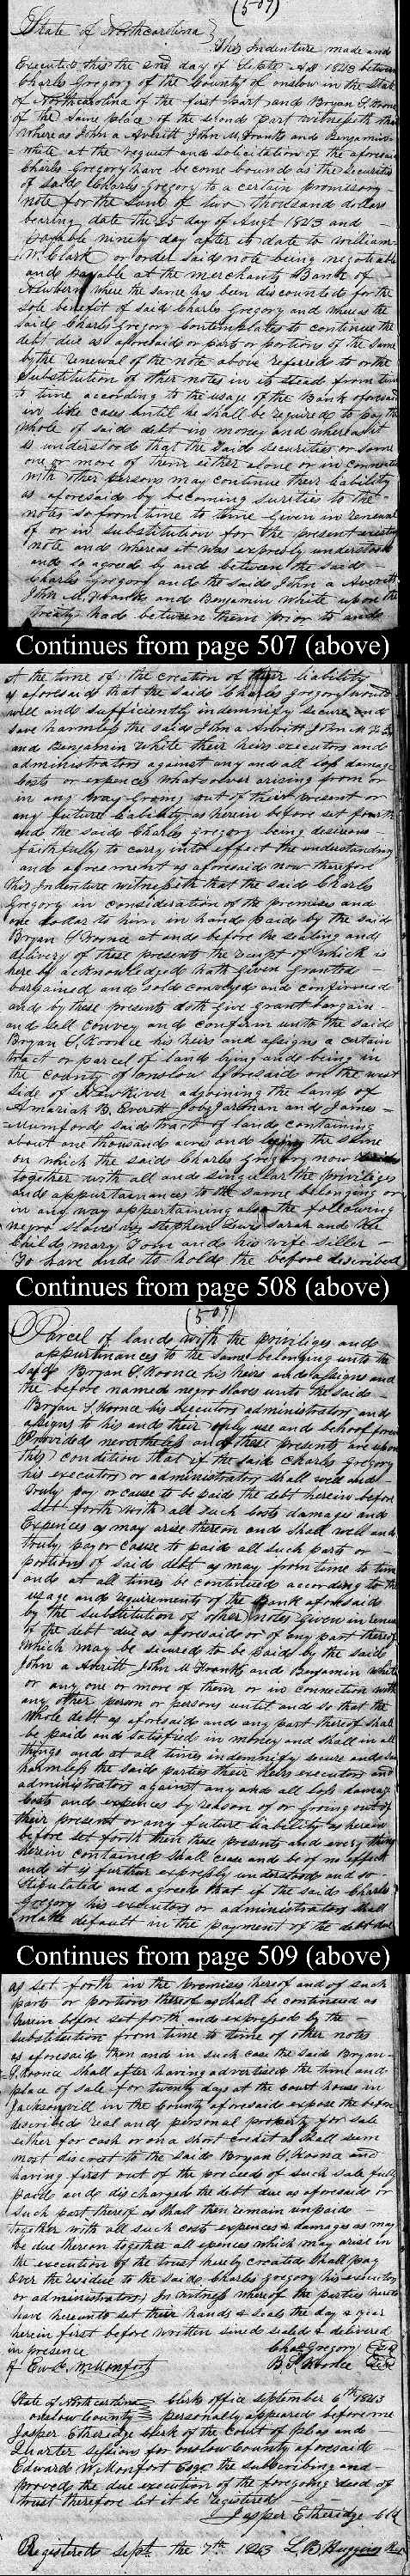 (507)
State of Northcarolina } This Indenture made and
Executed this the 2nd day of Septr AD 1843 between
Charles Gregory of the County of onslow in the State
of Northcarolina of the first part and Bryan S. Koonce
of the same place of the second part witnesseth that
whereas John A Averitt John M. Franks and Benjamin
white at the request and solicitation of the aforesaid
Charles Gregory have become bound as the securities
of said Charles Gregory to a certain promissory
note for the Sum of two thousand dollars
bearing date the 25 day of Augt 1843 and
payable ninety day after its date to William
W. Clark or order said note being negotiable
and payable at the merchants Bank of
Newbern where the same has been discounted for the
sole benefit of said Charles Gregory and whereas the
said Charles Gregory contemplates to continue the
debt due as aforesaid or part or portions of the same
by the renewal of the note above referred to or the
Substitution of other notes in its stead from time
to time according to the usage of the Bank aforesaid
in like cases until he shall be required to pay the
whole of said debt in money and whereas it
is understood that the said securities or some
one or more of them either alone or in connection
with other persons may continue their liability
as aforesaid by becoming sureties to the
notes so from time to time given in renewal
of or in substitution for the present existing
note and whereas it was expressly understood
and so agreed by and between the said
Charles Gregory and the said John A Averitt
John M. Franks and Benjamin White upon the
treaty had between them prior to and
Continues from page 507 (above)
at the time of the creation of their liability
as aforesaid that the said Charles Gregory would
well and sufficiently indemnify secure and
save harmless the said John A Averitt John M Franks
and Benjamin White their heirs executors and
administrators against any and all loss damage
Costs or expences whatsoever arising from or
in any way Growing out of their present or
any future liability as herein before set fourth
and the said Charles Gregory being desirous
faithfully to carry into effect the understanding
and agreement as aforesaid now therefore
this Indenture witnesseth that the said Charles
Gregory in consideration of the premises and
one dollar to him in hand paid by the said
Bryan S Koonce at and before the sealing and
delivery of these presents the receipt of which is
here by acknowledged hath Given granted
bargained and sold conveyed and confirmed
and by these presents doth Give grant bargain
and sell Convey and confirm unto the said
Bryan S. Koonce his heirs and assigns a certain
tract or parcel of land lying and being in
the county of onslow aforesaid on the west
side of New River adjoining the land of
Amariah B. Everett Joby Jarman and James
Mumford said tract of land containing
about one thousand acres and being the same
on which the said Charles Gregory now resides
together with all and singular the privileges
and appurtainances to the same belonging or
in any way appertaining also the following
negro slaves viz Stephen Dave Sarah and her
Child mary Tom and his wife Siller
To have and to hold the before described
Continues from page 508 (above)
(509)
Parcel of land with the priviliges and
appurtinances to the same belonging unto the
said Bryan S. Koonce his heirs and assigns and
the before named negro slaves unto the said
Bryan S. Koonce his executors administrators and
assigns to his and their only use and behoof forever
Provided nevertheless and these presents are upon
this condition that if the said Charles Gregory
his executors or administrators shall well and
truly pay or cause to be paid the debt herein before
set forth with all such costs damages and
Expences as may arise thereon and shall well and
truly pay or cause to paid all such part or
portions of said debt as may from time to time
and at all times be continued according to the
usage and requirements of the Bank aforesaid
by the substitution of other notes given in renewal
of the debt due as aforesaid or of any part thereof
which may be secured to be paid by the said
John A Averitt John M Franks and Benjamin White
or any one or more of them or in connection with
any other person or persons until and so that the
whole debt as aforesaid and any part thereof shall
be paid and satisfied in money and shall in all
things and at all times indemnify secure and save
harmless the said parties their heirs executors and
administrators against any and all loss damage
costs and expences by reason of or Growing out of
their present or any future liability as herein
before set forth then these presents and every thing
herein contained shall cease and be of no effect
and it is further expressly understood and so
stipulated and agreed that if the said Charles
Gregory his executors or administrators shall
make default in the payment of the debt due
Continues from page 509 (above)
as set forth in the premises thereof and of such
parts or portions thereof as shall be continued as
herein before set forth and expressed by the
substitution from time to time of other notes
as aforesaid then and in such case the said Bryan
S. Koonce shall after having advertised the time and
place of sale for twenty days at the court house in
Jacksonvill in the County aforesaid expose the before
described real and personal property for sale
either for cash or on a short credit as shall seem
most discreet to the said Bryan S. Koonce and
having first out of the proceeds of such sale fully
paid and discharged the debt due as aforesaid or
such part thereof as shall then remain unpaid
together with all such costs expences & damages as may
be due thereon together all expences which may arise in
the execution of the trust hereby created shall pay
over the residue to the said Charles Gregory his executors
or administrators In witness whereof the parties hereto
have hereunto set their hands & seals the day & year
herein first before written sined sealed & delivered
in presence Chas Gregory Seal
of Ewd. W. Monfort B S Koonce Seal
State of Northcarolina Clerk office september 6th 1843
onslow County personally appeared before me
Jasper Etheridge Clerk of the Court of pleas and
Quarter sessions for onslow County aforesaid
Edward W. Monfort Esqr the subscribing and
proved the due execution of the foregoing deed of
trust therefore let it be registered
Jasper Etheridge Clk
Registered Sept. the 7th 1843 L. B Huggins Reg